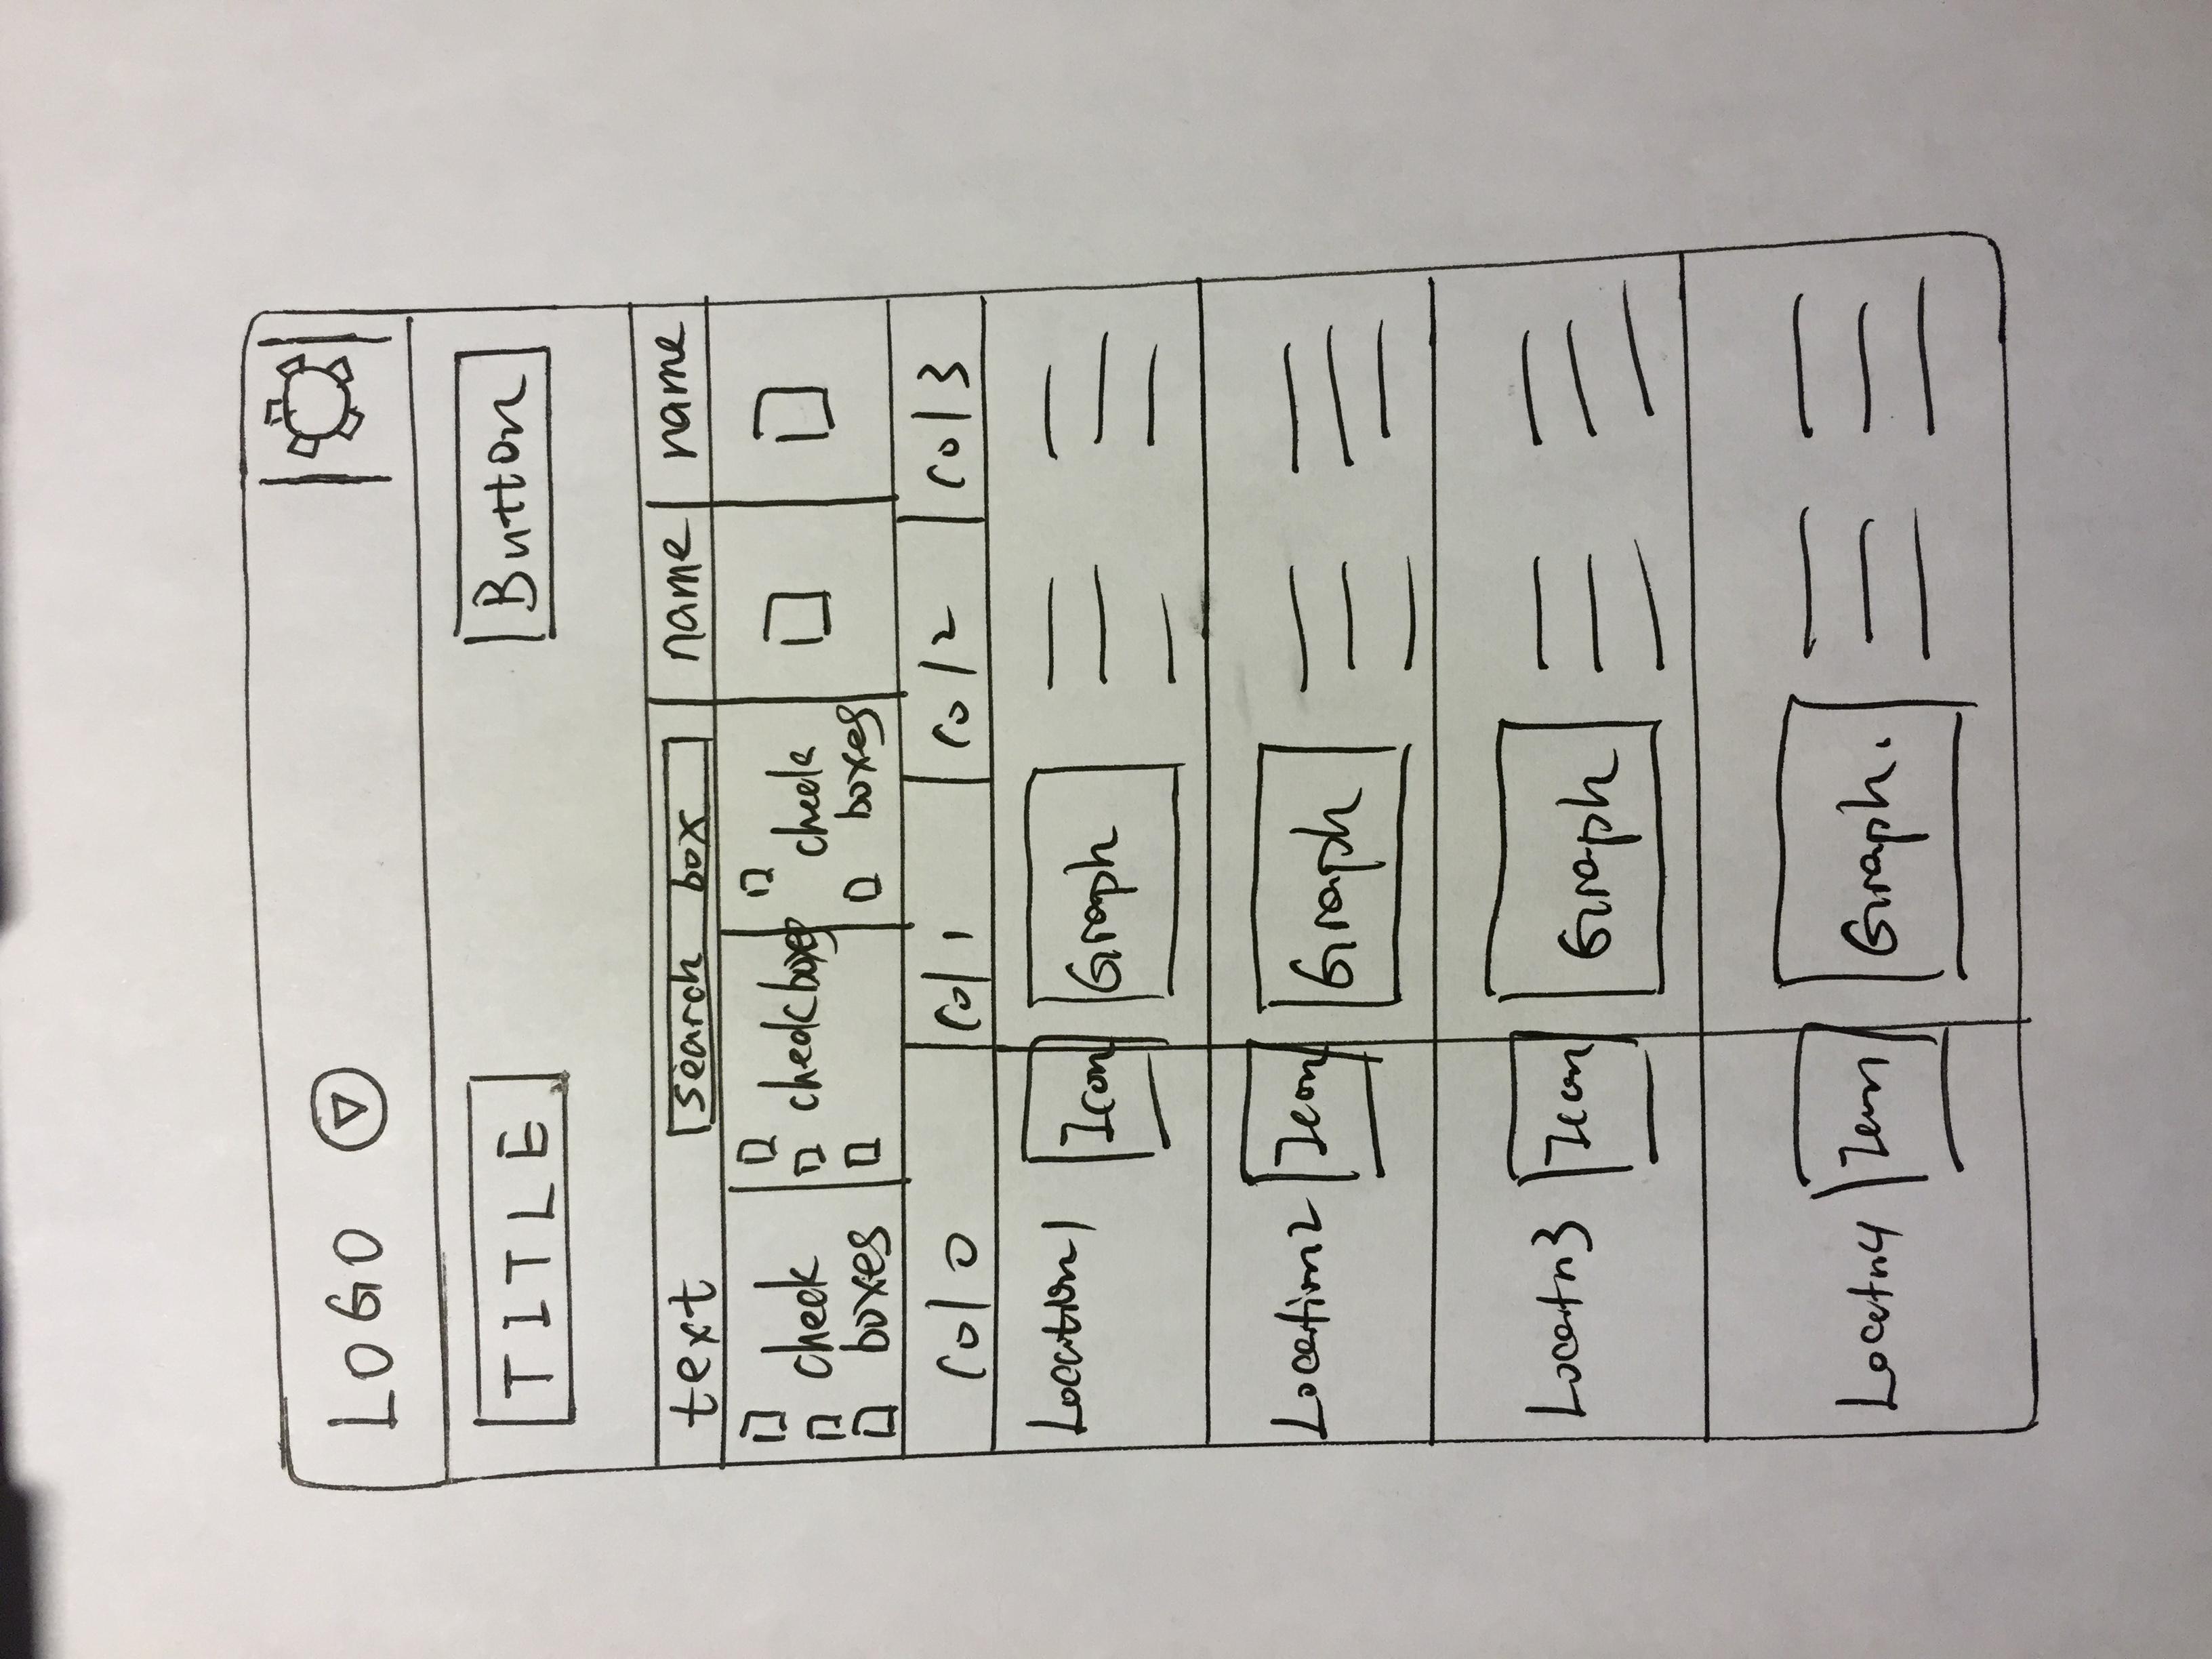 LOGO
TITLE
Button
text
search box
name
name
check
boxes
checkboxes
check
boxes
Col 0
Col 1
Col 2
Col 3
Location1
Icon
Graph
Location2
Icon
Graph
Locatn3
Icon
Graph
Locatn4
Icon
Graph.